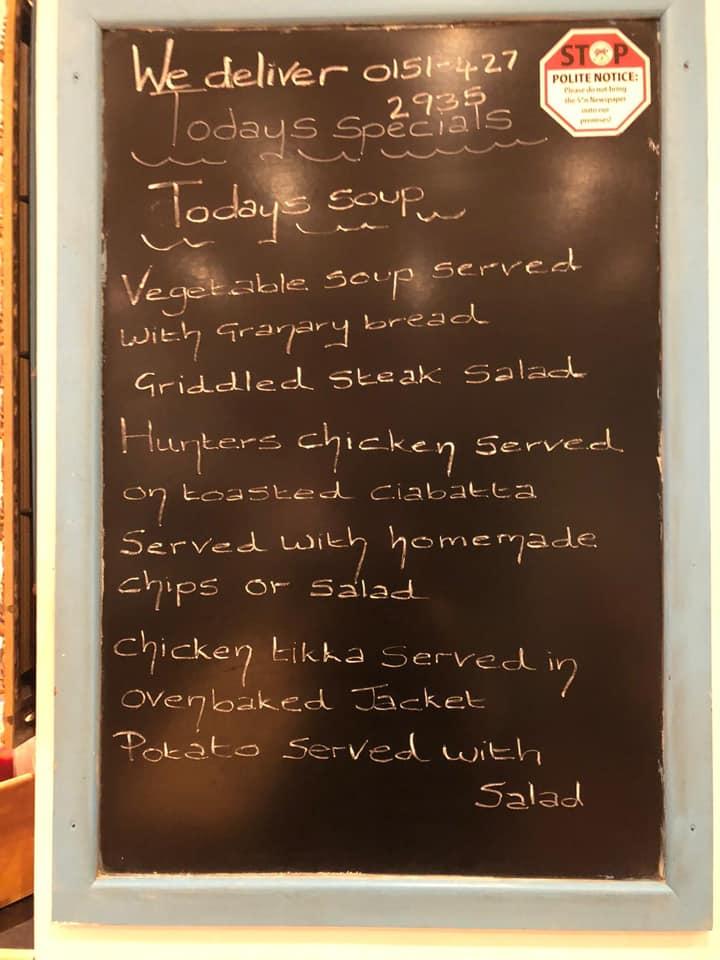 We deliver 0151-427
2935
Todays specials
Todays soup
Vegetable soup served
with Granary bread
Griddled steak salad
Hunters chicken served
on toasted ciabatta
Served with homemade
chips or salad
chicken tikka served in
ovenbaked Jacket
Potato served with
Salad
STOP
POLITE NOTICE:
Please do not bring
the S*n Newspaper
onto our
premises!